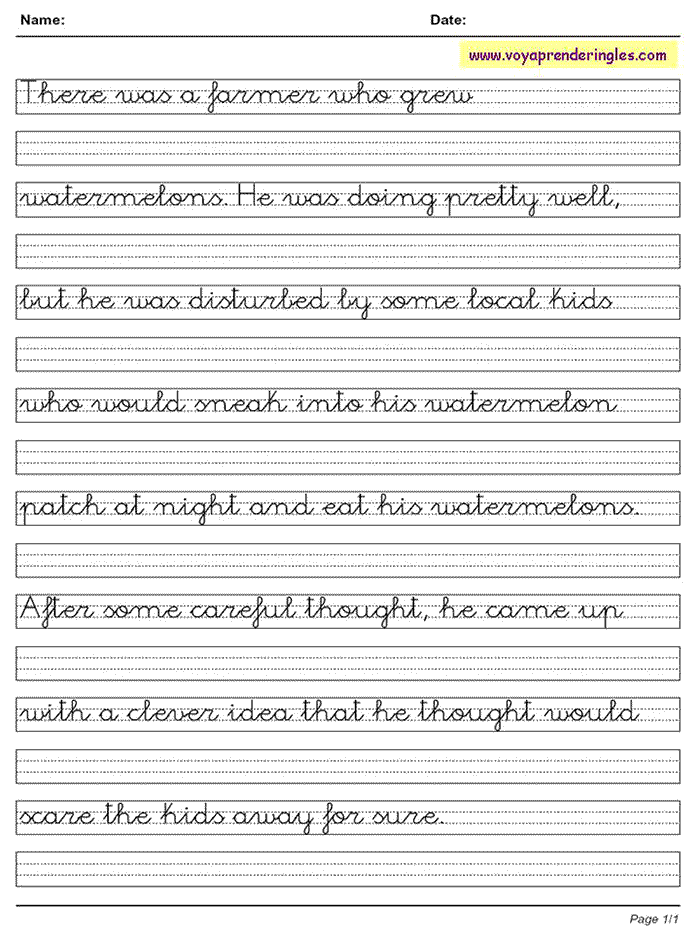 Name: Date:
www.voyaprenderingles.com
There was a farmer who grew
watermelons. He was doing pretty well,
but he was disturbed by some local kids
who would sneak into his watermelon
patch at night and eat his watermelons.
After some careful thought, he came up
with a clever idea that he thought would
scare the kids away for sure.
Page 1/1